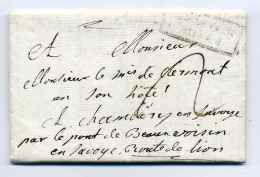 A Monsieur
Monsieur le mis de Clermont
en son hôtel
à chambéry en savoye
par le pont de Beauvoisin
en savoye Route de lion
2